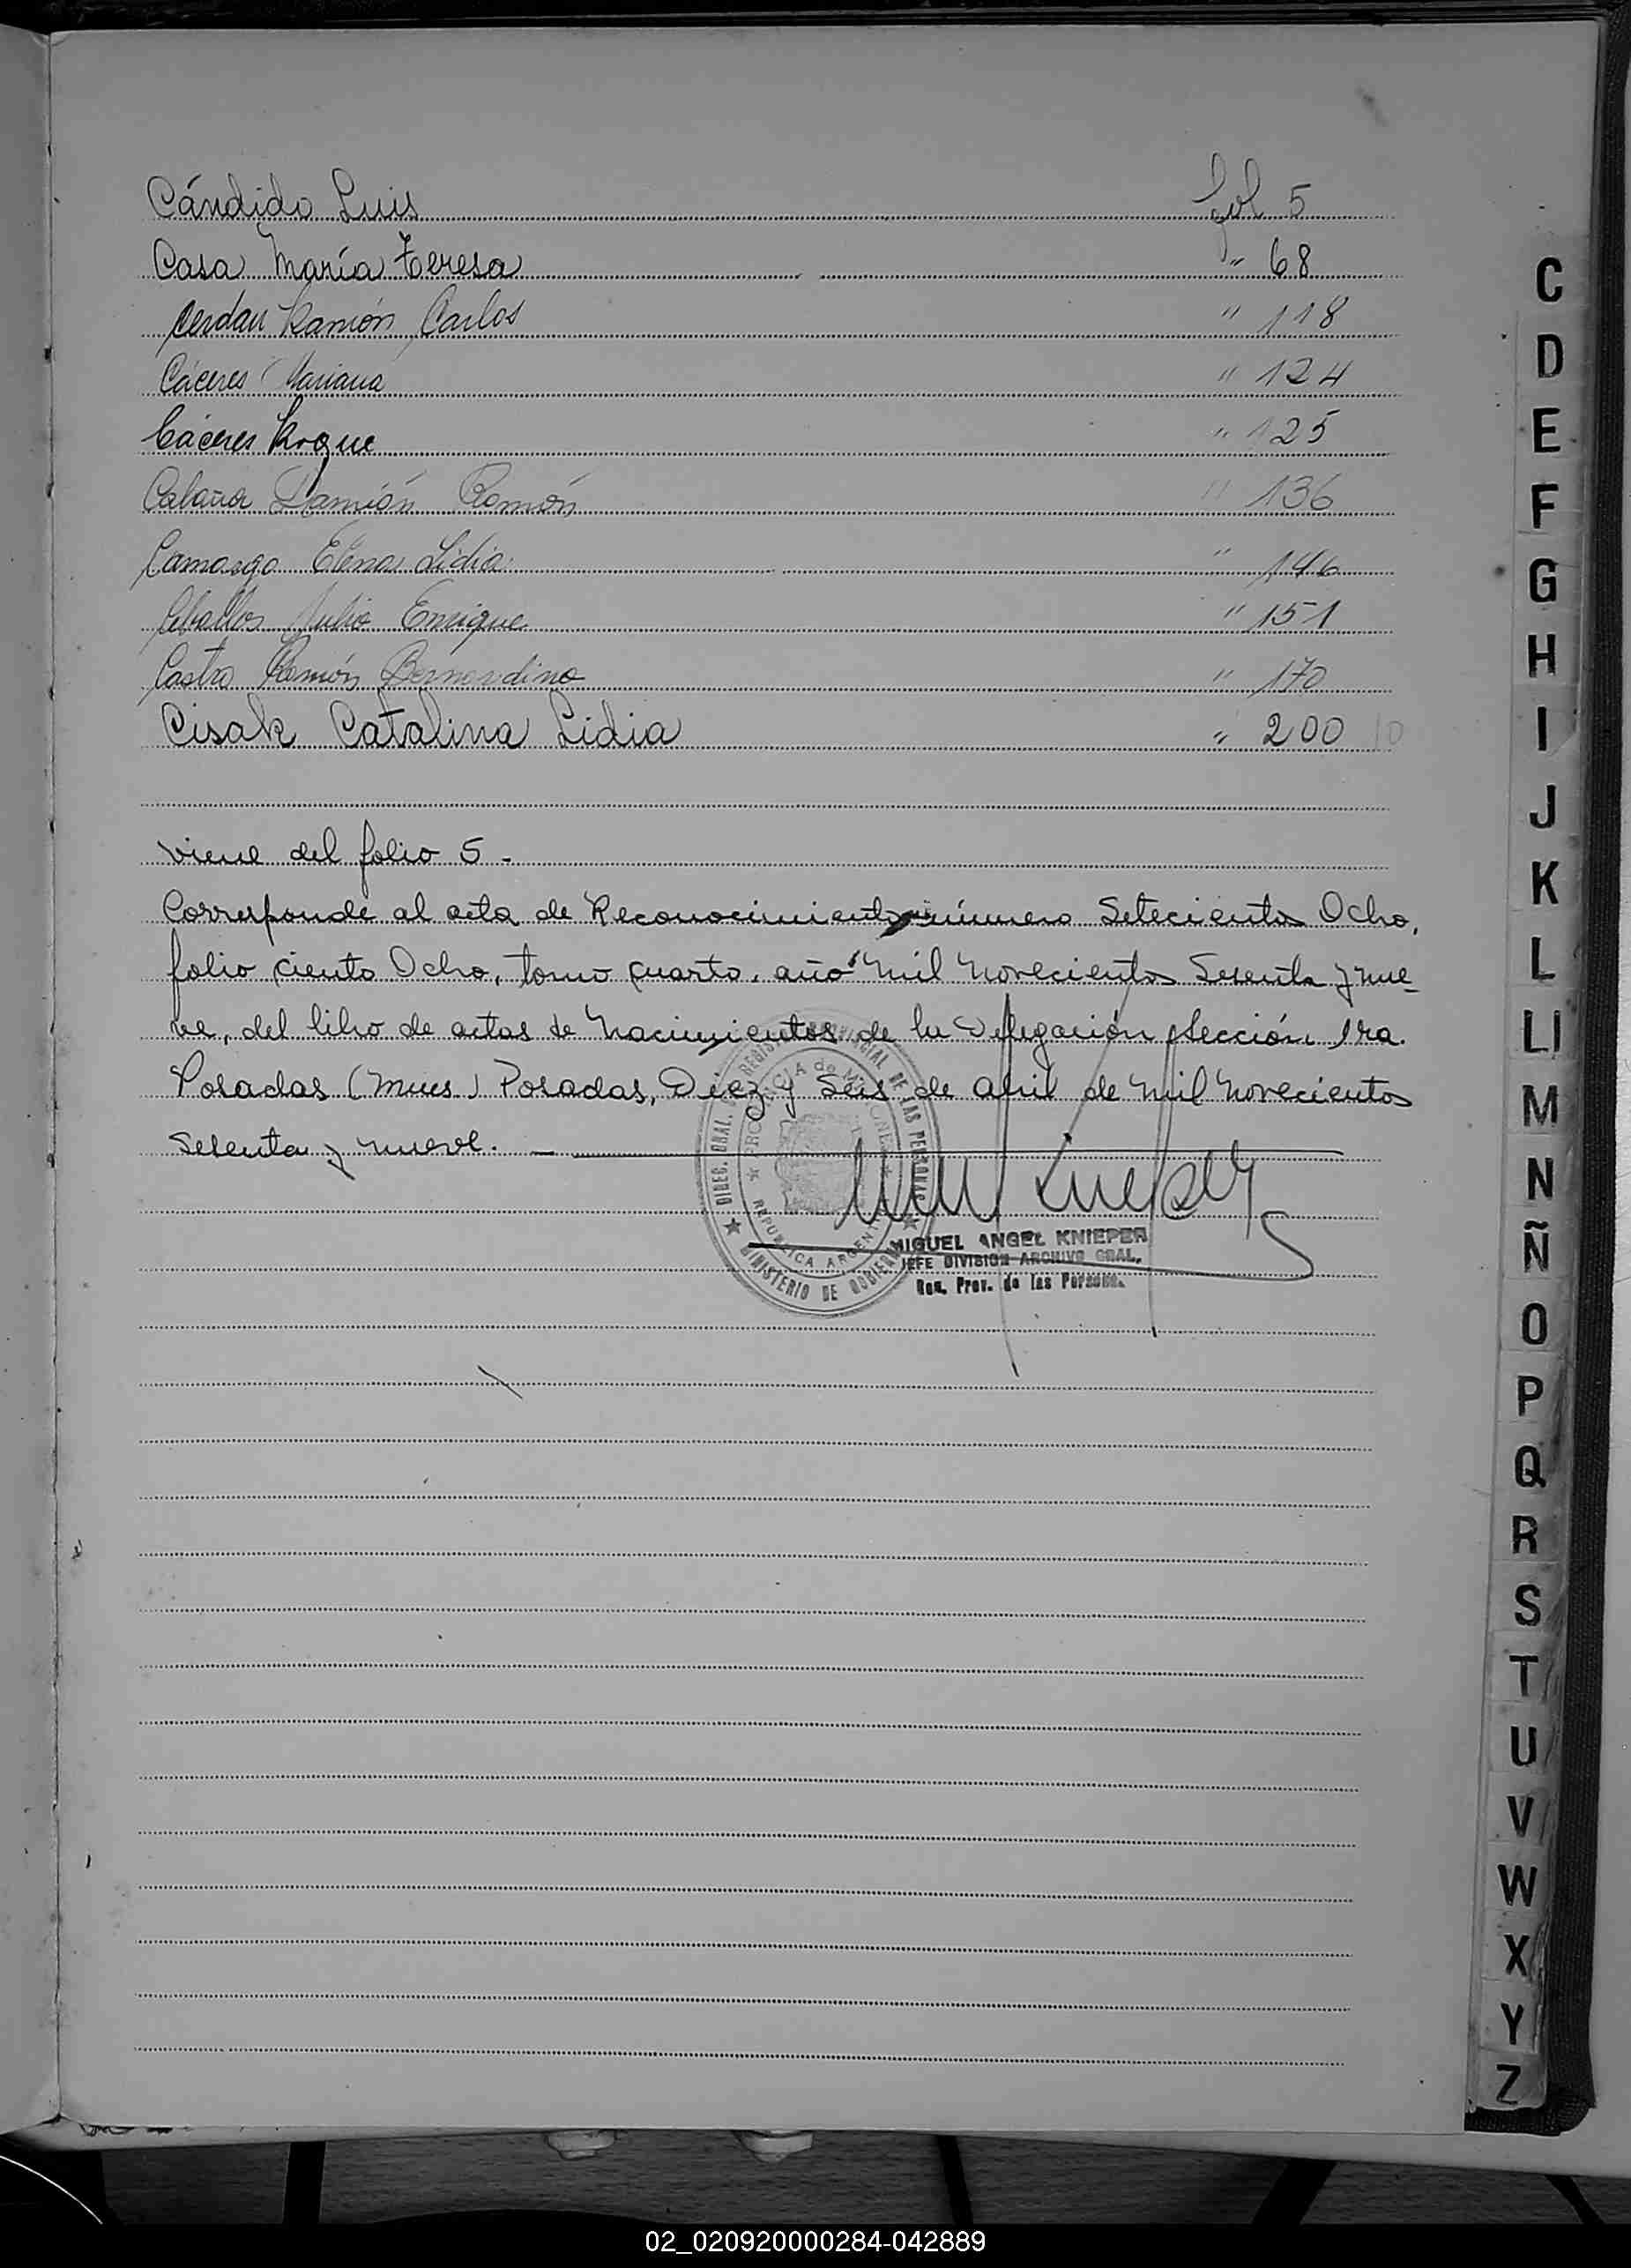 Cándido Luis fol 5
Casa María Teresa " 68
Cerdan Ramón Carlos " 118
Cáceres Mariana " 124
Cáceres Roque " 125
Cabaña Damión Ramón " 136
Camargo Elena Lidia " 146
Ceballos Julio Enrique " 151
Castro Ramón Bernardino " 170
Cisak Catalina Lidia " 200
viene del folio 5 -
Corresponde al acta de Reconocimiento número Setecientos Ocho,
folio ciento Ocho, tomo cuarto, año mil novecientos Sesenta y nue-
ve, del libro de actas de nacimientos de la Delegación Sección 1ra.
Posadas (Mnes) Posadas, Diez y Seis de abril de mil novecientos
sesenta y nueve. -
DIREC. GRAL. DEL REGISTRO PROVINCIAL DE LAS PERSONAS
PROVINCIA de MISIONES
REPUBLICA ARGENTINA
MINISTERIO DE GOBIERNO
MIGUEL ANGEL KNIEPER
JEFE DIVISION ARCHIVO GRAL.
Reg. Prov. de las Personas.
C
D
E
F
G
H
I
J
K
L
Ll
M
N
Ñ
O
P
Q
R
S
T
U
V
W
X
Y
Z
02_020920000284-042889